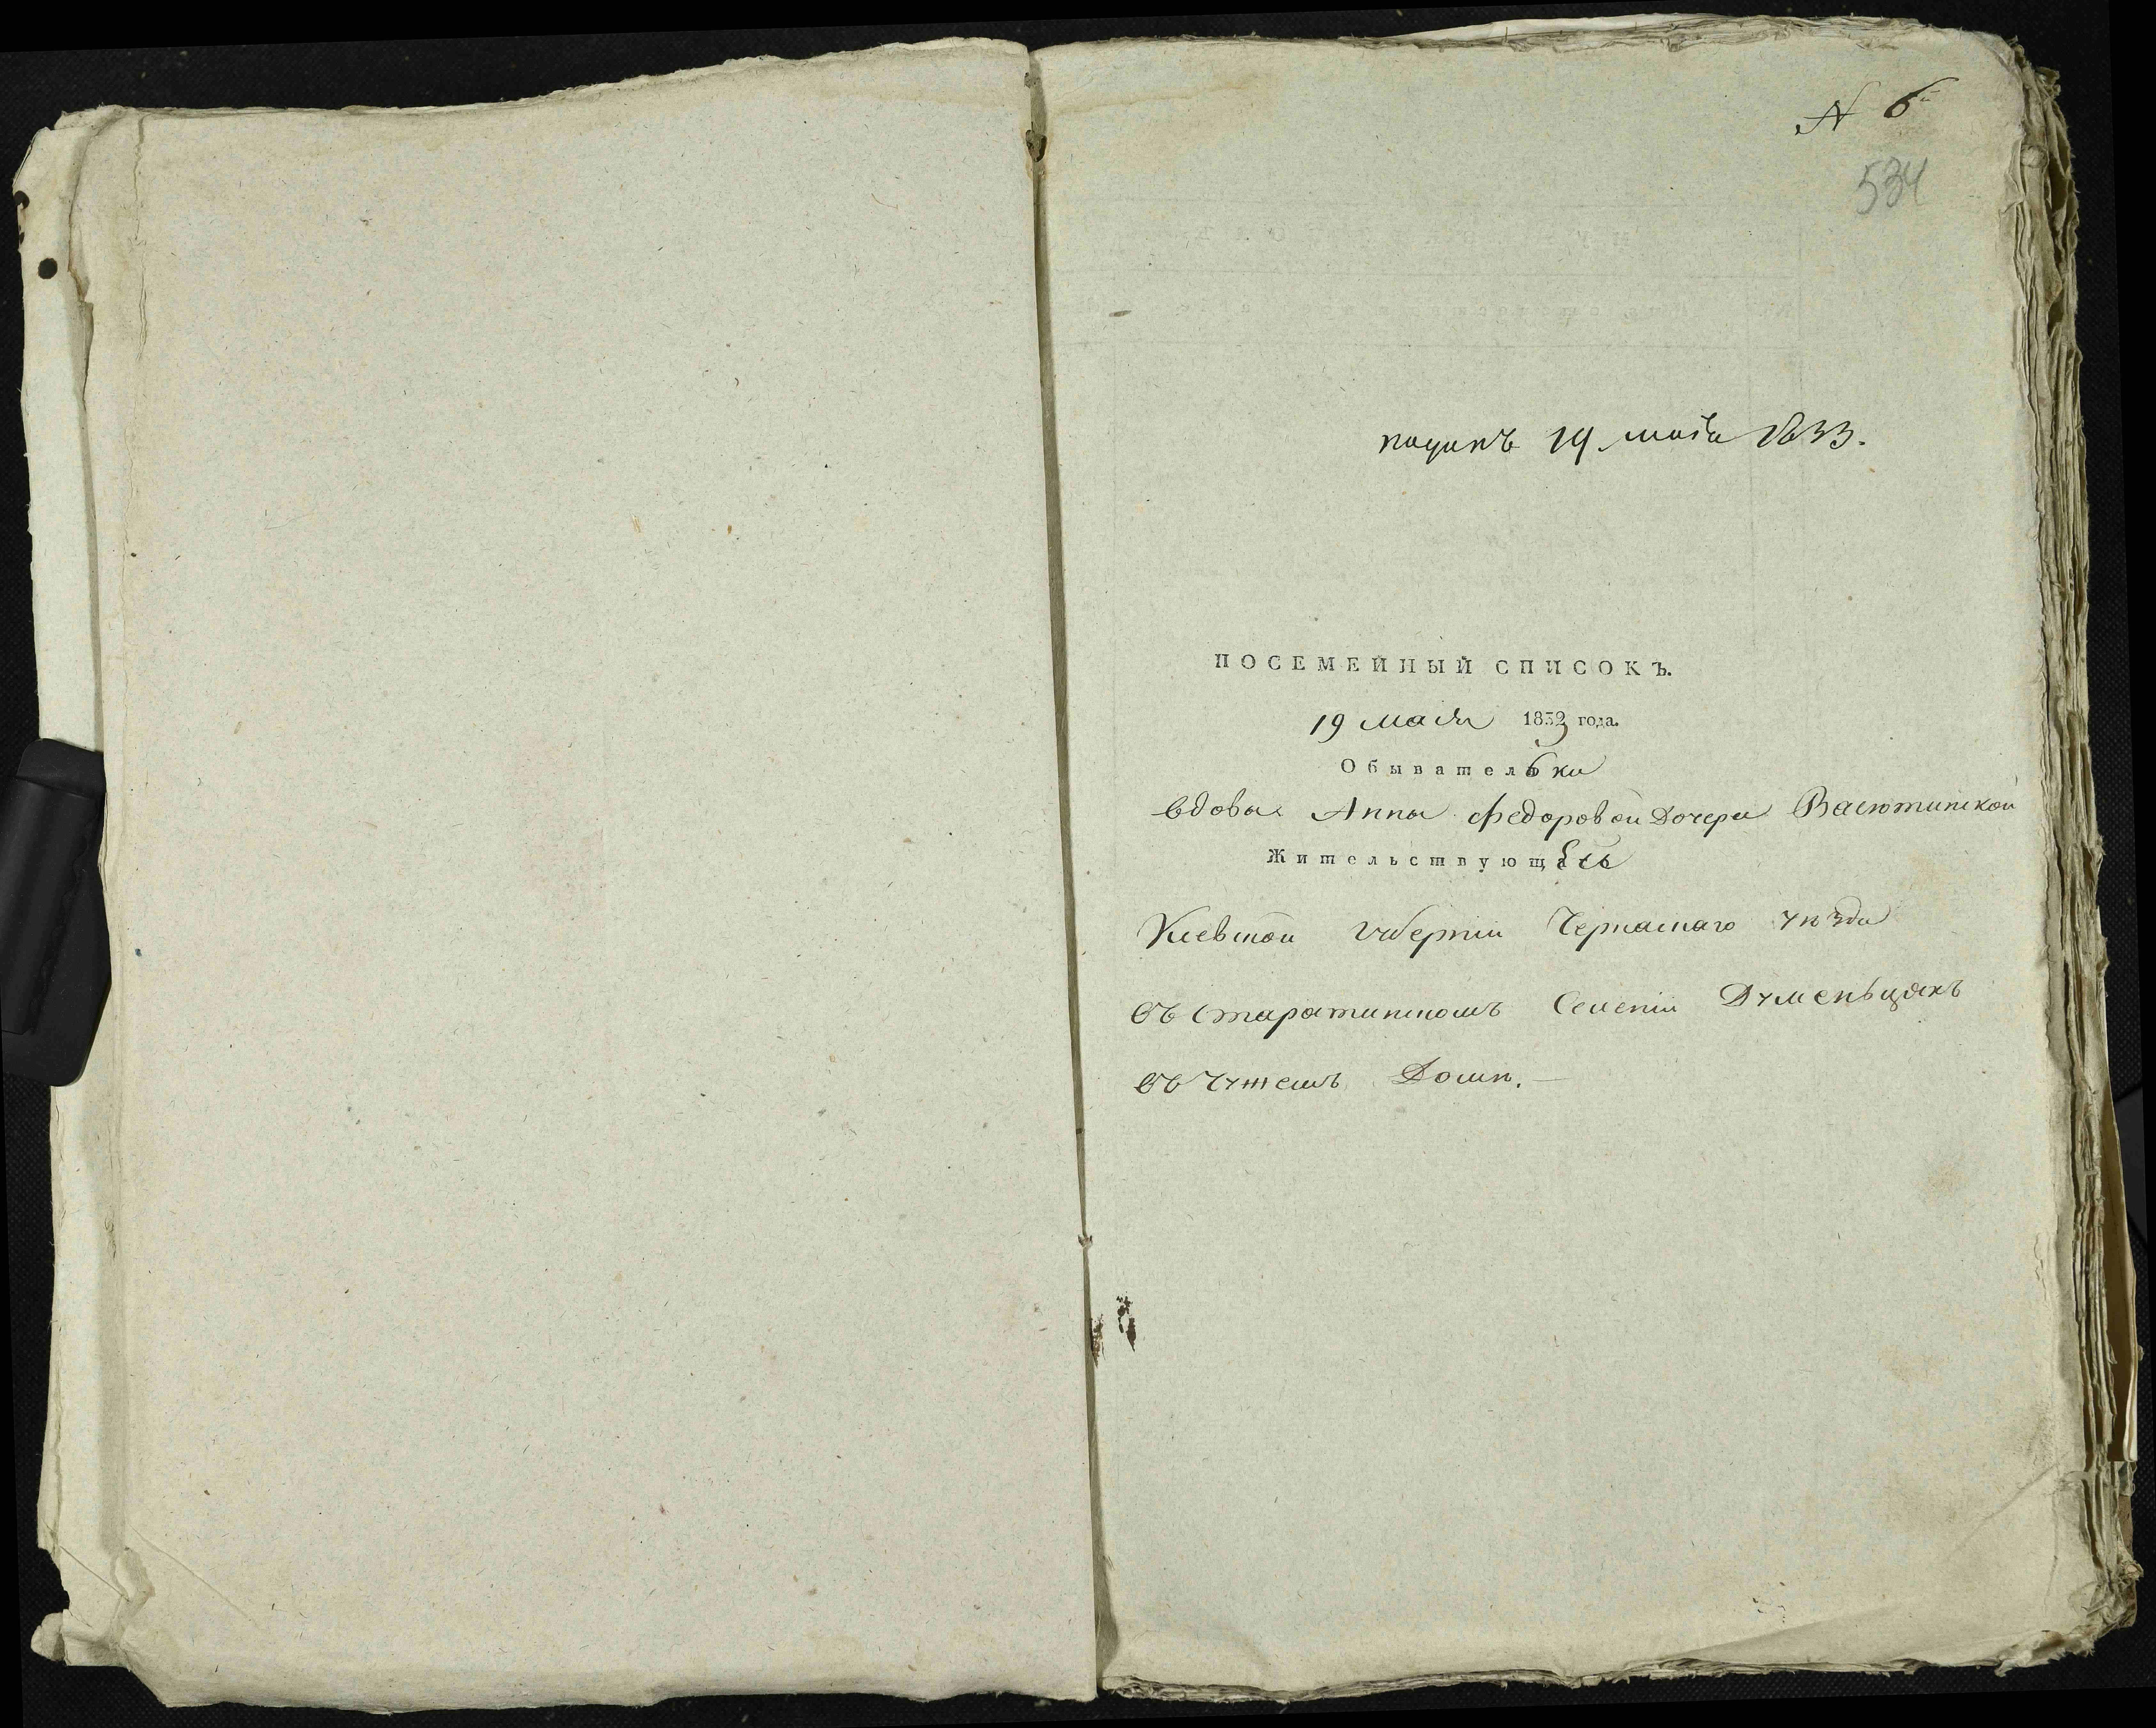 N 6й
534
поданъ 19 маія 1833.
ПОСЕМЕЙНЫЙ СПИСОКЪ.
19 маія 1833 года.
Обывательки
вдовы Анны Федоровой дочери Васютинской
Жительствующей
Киевской губерніи Черкаскаго уѣзда
въ Селеніи
въ чужемъ Домѣ. —